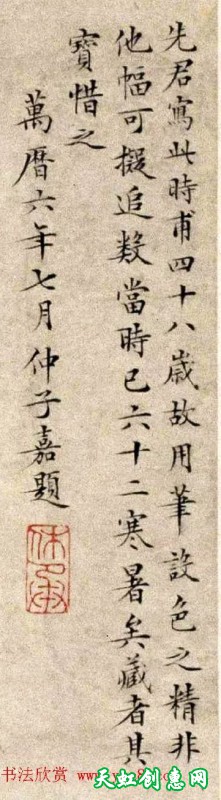 先君寫此時甫四十八歲故用筆設色之精非
他幅可擬追數當時已六十二寒暑矣藏者其
寶惜之
萬曆六年七月仲子嘉題
休承
书法欣赏
天虹创意网